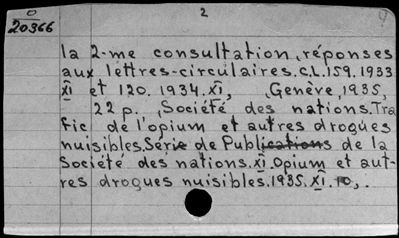 O
20366
2
4
la 2-me consultation, réponses
aux lettres-circulaires.C.L.159.1933
XI et 120.1934.XI, Genève,1935,
22 p. ,Société des nations.Tra
fic de l'opium et autres drogues
nuisibles.Série de Publications de la
Société des nations.XI.Opium et aut-
res drogues nuisibles.1935.XI.10,.